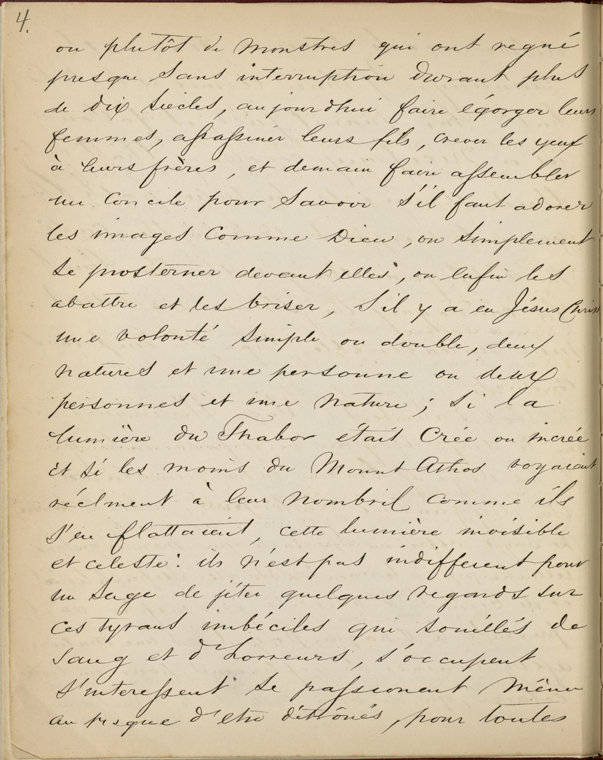 4.
ou plutôt de monstres qui ont regné
presque sans interruption durant plus
de dix siècles, aujourdhui faire égorger leurs
femmes, assassiner leurs fils, crever les yeux
à leurs frères, et demain faire assembler
un concile pour savoir s'il faut adorer
les images comme Dieu, ou simplement
se prosterner devant elles, ou enfin les
abattre et les briser, s'il y a en Jésus Christ
une volonté simple ou double, deux
natures et une personne ou deux
personnes et une nature; si la
lumière du Thabor était crée ou incrée
et si les moins du Mount Athos voyaient
réelment à leur nombril comme ils
s'en flattaient, cette lumière invisible
et celeste: ils n'est pas indifferent pour
un sage de jéter quelques regards sur
ces tyrans imbéciles qui souillés de
sang et d'horreurs, s'occupent
s'interessent se passionent même
au risque d'etre détrônés, pour toutes